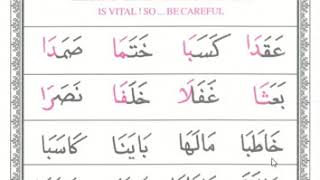 IS VITAL ! SO ... BE CAREFUL
صَمَدَا خَتَمَا كَسَبَا عَقَدَا
نَصَرَا خَلَفَا غَفَلَا بَعَثَا
كَاسَبَا بَايَنَا مَالَهَا خَاطَبَا